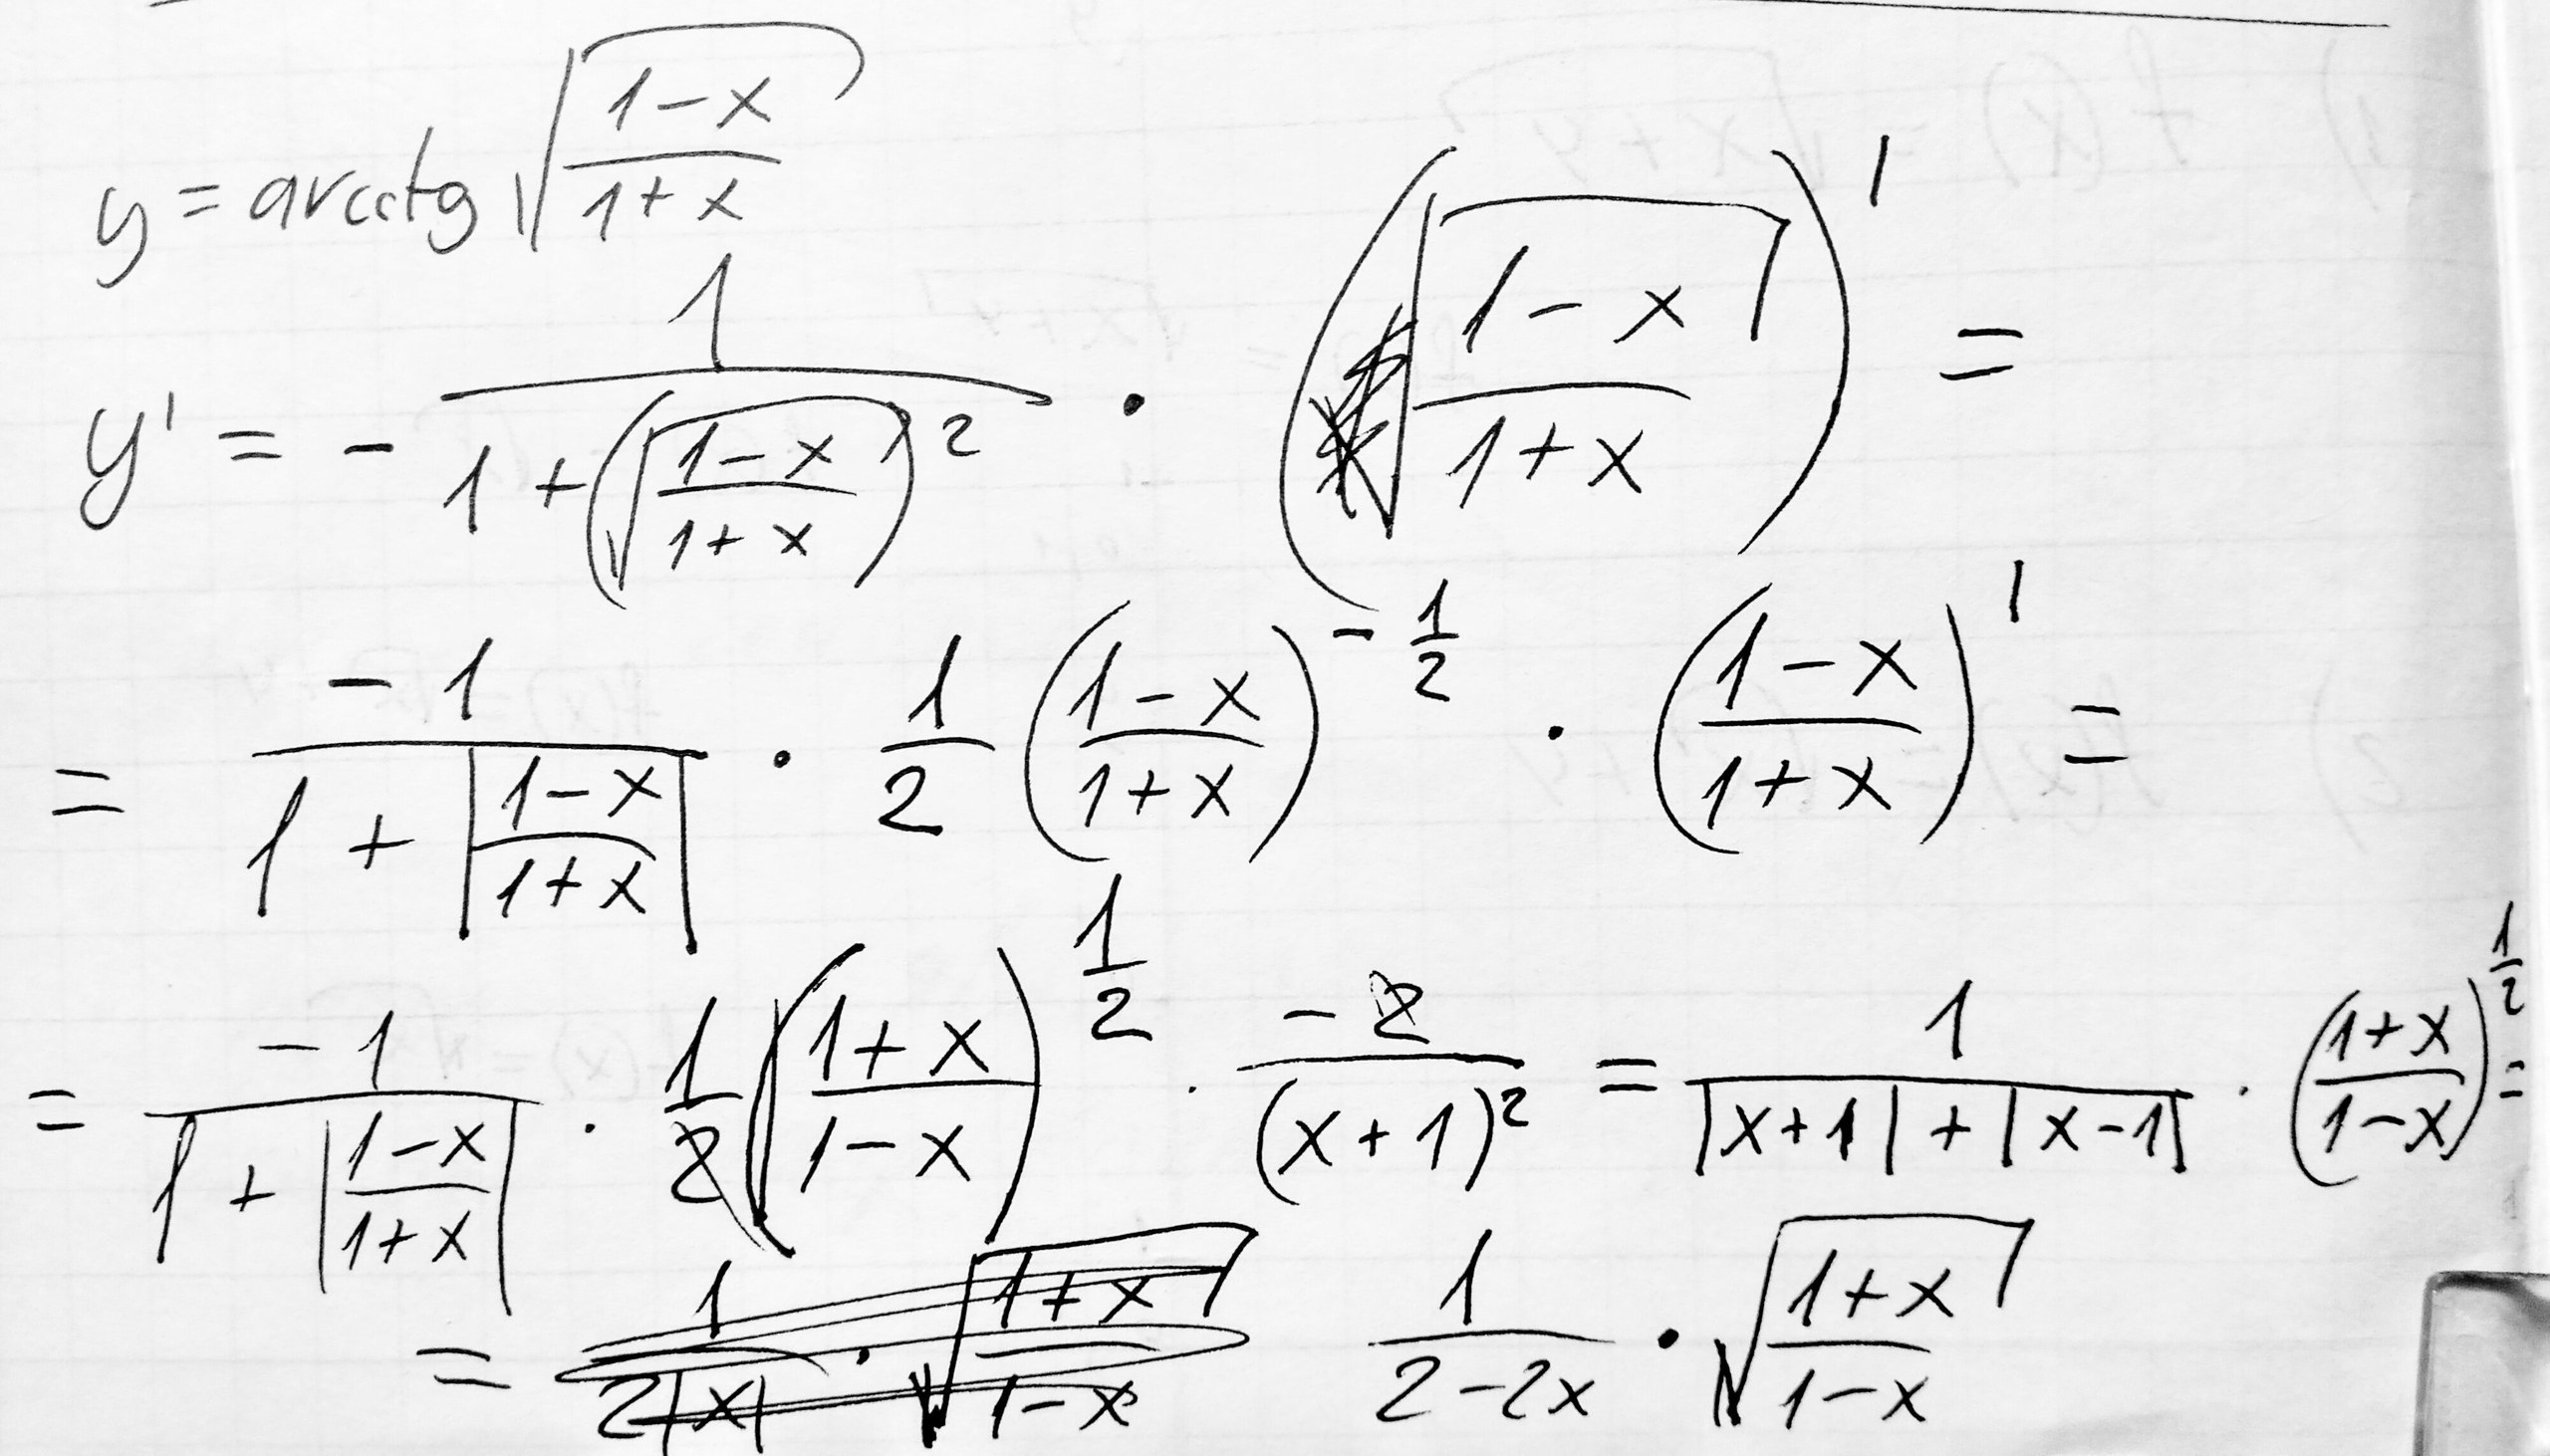 y = arcctg √((1-x)/(1+x))
y' = - 1/(1+(√((1-x)/(1+x)))²) · (√((1-x)/(1+x)))' =
= -1/(1+|(1-x)/(1+x)|) · 1/2 ((1-x)/(1+x))^(-1/2) · ((1-x)/(1+x))' =
= -1/(1+|(1-x)/(1+x)|) · 1/2 ((1+x)/(1-x))^(1/2) · -2/(x+1)² = 1/(|x+1|+|x-1|) · ((1+x)/(1-x))^(1/2) =
= 1/(2|x|) · √((1+x)/(1-x)) 1/(2-2x) · √((1+x)/(1-x))